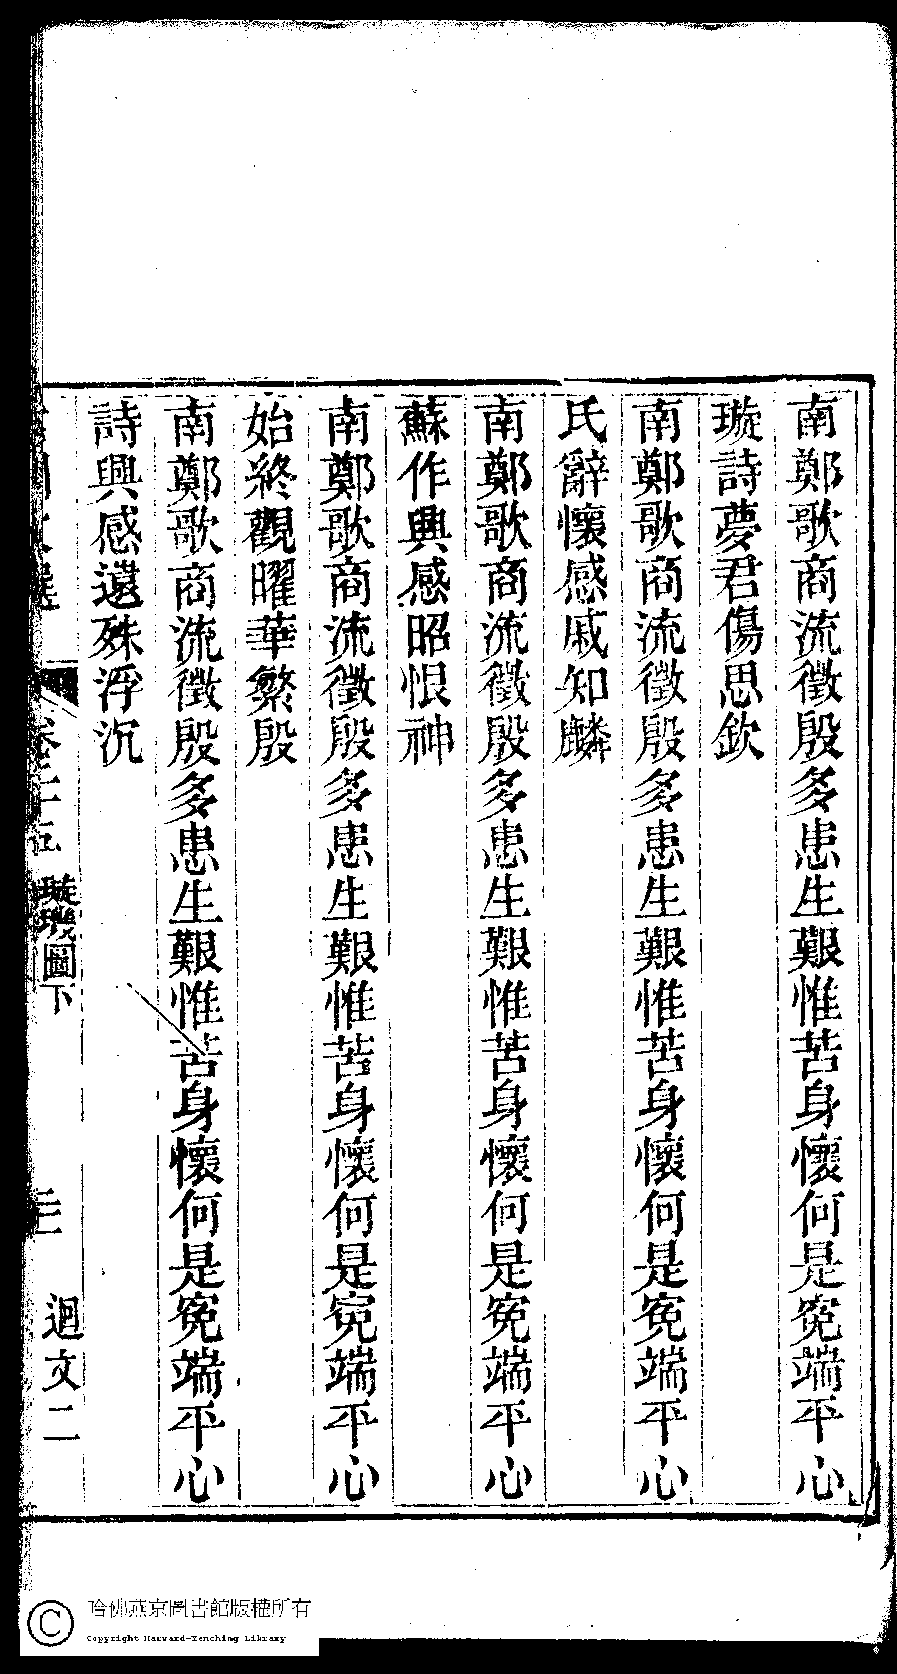 南鄭歌商流徵殷多患生艱惟苦身懷何是寃端平心
璇詩夢君傷思欽
南鄭歌商流徵殷多患生艱惟苦身懷何是寃端平心
氏辭懷感戚知麟
南鄭歌商流徵殷多患生艱惟苦身懷何是寃端平心
蘇作興感昭恨神
南鄭歌商流徵殷多患生艱惟苦身懷何是寃端平心
始終觀曜華繁殷
南鄭歌商流徵殷多患生艱惟苦身懷何是寃端平心
詩興感遠殊浮沉
選 卷二十五 璇璣圖下 迴文二
哈佛燕京圖書館版權所有
Copyright Harvard-Yenching Library